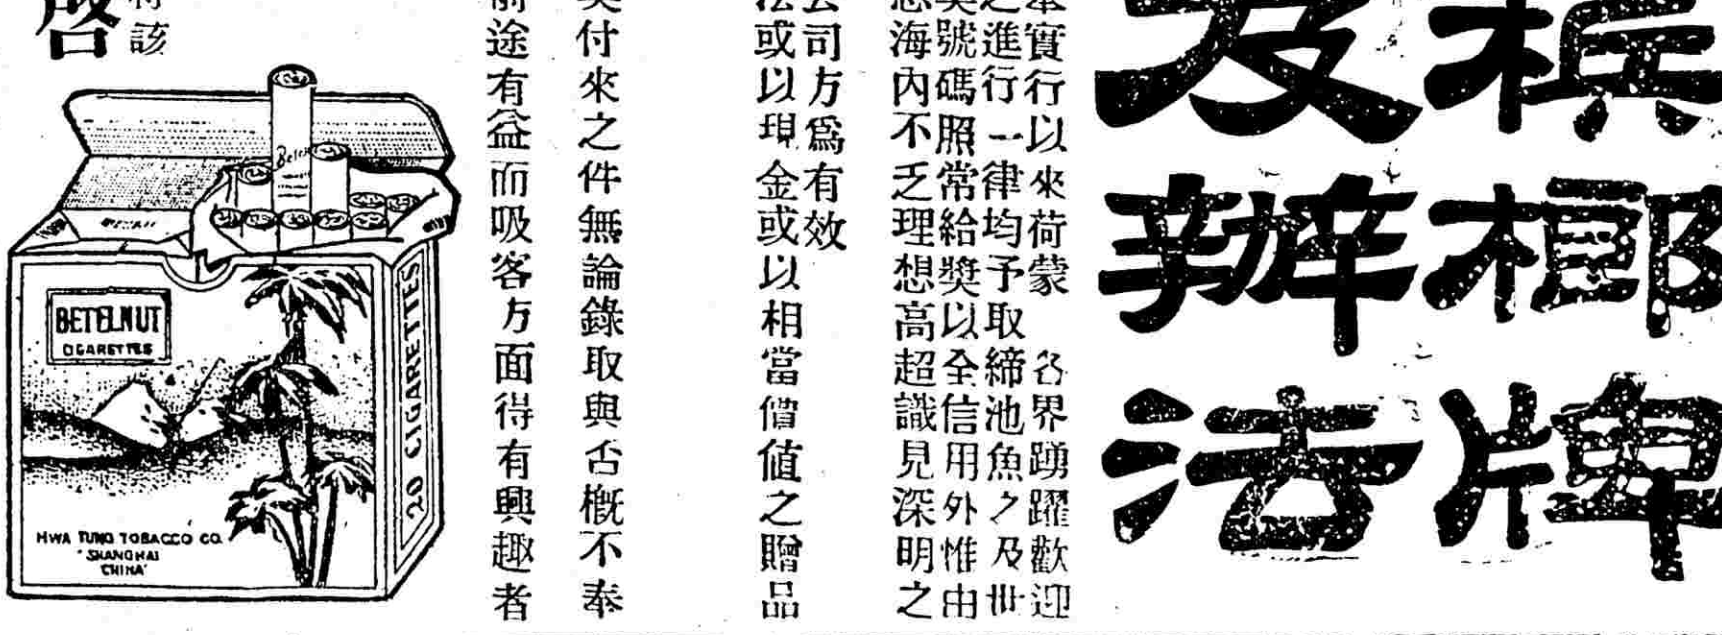 檳榔牌
及辦法
實行以來荷蒙 各界踴躍歡迎
之進行一律均予取締池魚之及世
獎號碼照常給獎以全信用外惟由
海內不乏理想高超識見深明之
公司方爲有效
法或以現金或以相當價值之贈品
付來之件無論錄取與否槪不奉
前途有益而吸客方面得有興趣者
該
啓
BETELNUT
CIGARETTES
20 CIGARETTES
HWA TUNG TOBACCO CO.
SHANGHAI
CHINA